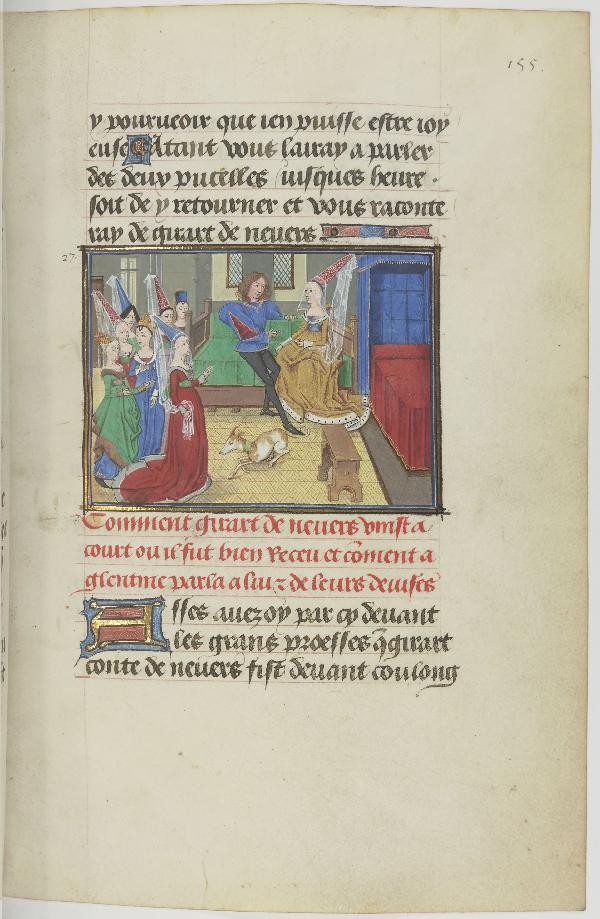 155.
y pourueoir que ien puisse estre ioy
euse Atant vous lairay a parler
des deux pucelles iusques heure
soit de y retourner et vous raconte
ray de girart de neuers
27.
Comment girart de neuers vinst a
court ou il fut bien Receu et cõment a
glentine parla a lui z de leurs deuises
Asses auez oy par cy deuant
les grans proesses q̃ girart
conte de neuers fist deuant coulong